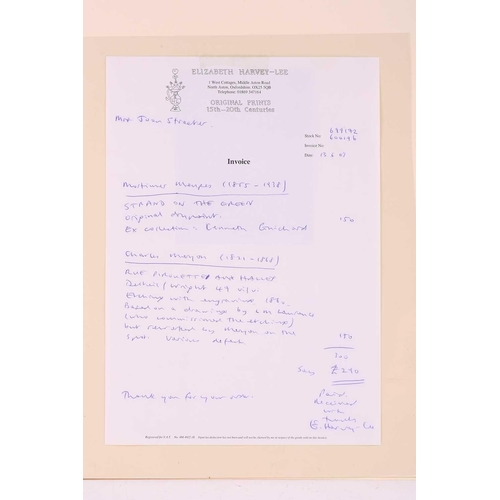 ELIZABETH HARVEY-LEE
1 West Cottages, Middle Aston Road
North Aston, Oxfordshire. OX25 5QB
Telephone: 01869 347164
ORIGINAL PRINTS
15th-20th Centuries
Stock No:
Invoice No:
Invoice
Date:
Mortimer Menpes (1855 - 1938)
STRAND ON THE GREEN
Original drypoint.
Ex collection: Kenneth Guichard
150
Charles Meryon (1821 - 1868)
RUE PIROUETTE AUX HALLES
Delteil/Wright 49
Etching with engraving 1860.
Based on a drawing by Laurence
(who commissioned the etching)
but reworked by Meryon on the
spot. Various defects
150
300
Say £290
Thank you for your order.
Paid.
Received
with
thanks
E. Harvey-Lee